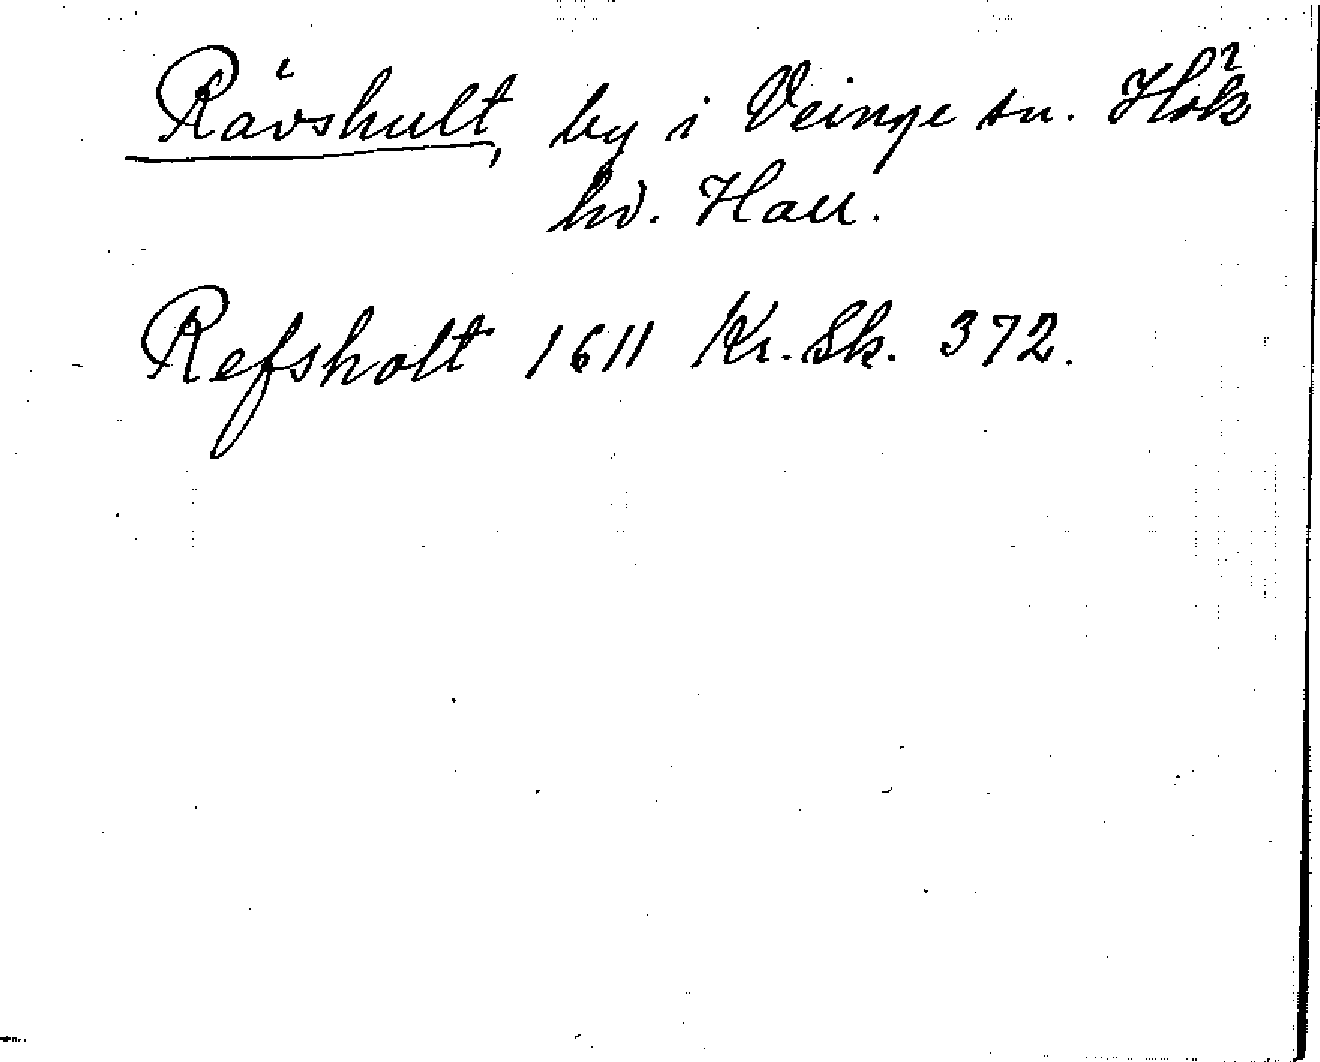 Rävshult, by i Veinge sn. Hök
hd. Hall.
Refsholt 1611 Kr. Sk. 372.